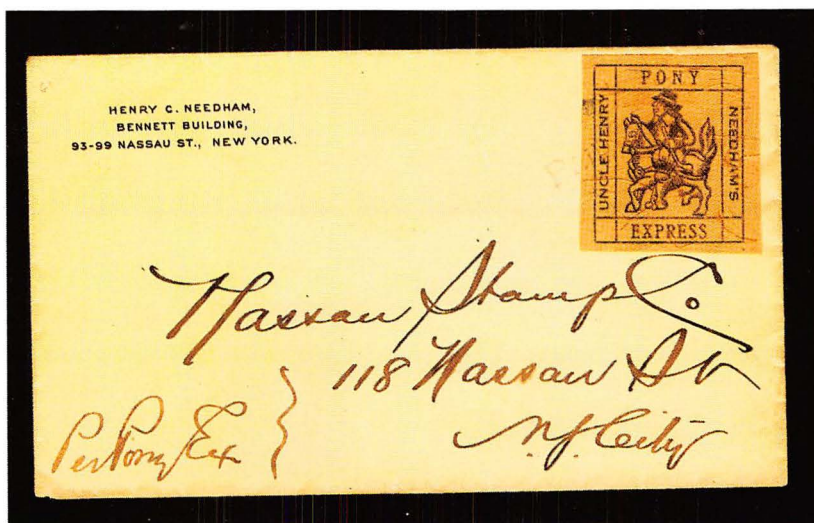 HENRY C. NEEDHAM,
BENNETT BUILDING,
93-99 NASSAU ST., NEW YORK.
PONY
UNCLE HENRY
NEEDHAM'S
EXPRESS
Nassau Stamp Co
118 Nassau St
N.Y. City
Per Pony Ex